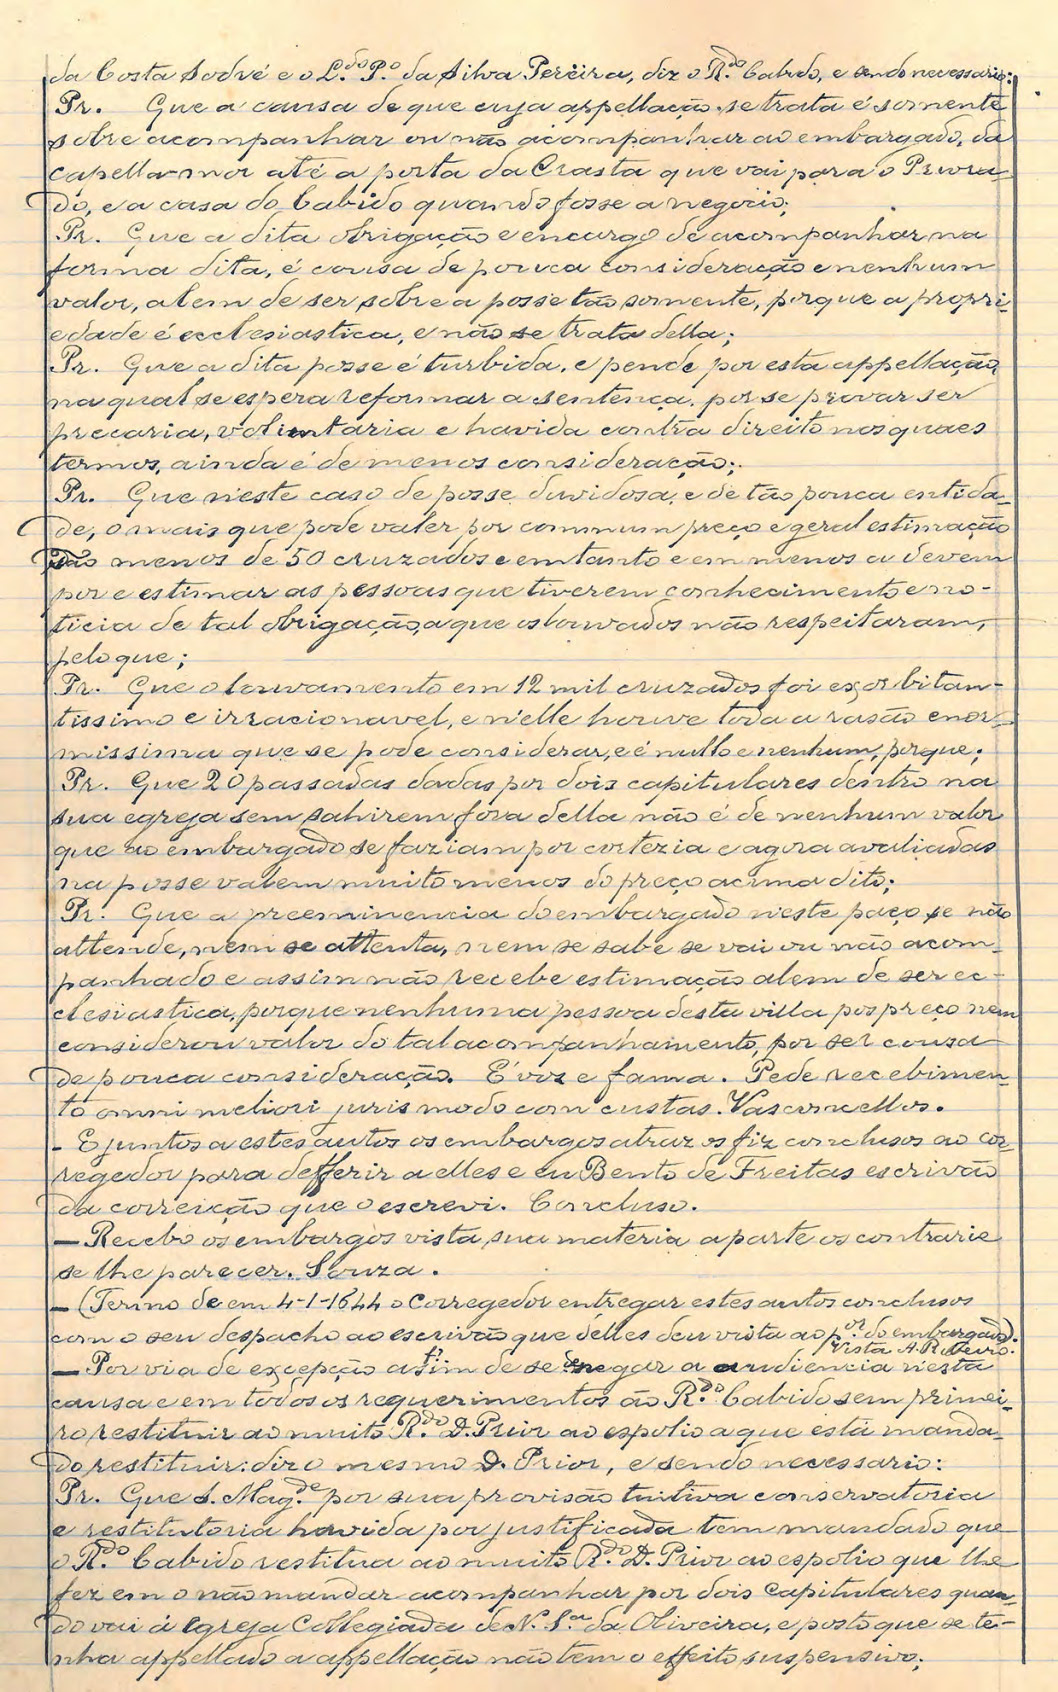 da Costa Sodré e o L.do P.o da Silva Pereira, diz o R.do Cabido, e sendo necessario:
Pr. Que a causa de que cuja appellação se trata é somente
sobre acompanhar ou não acompanhar ao embargado, da
capella-mor até a porta da Crasta que vai para o Priora-
do, e a casa do Cabido quando fosse a negocio;
Pr. Que a dita obrigação e encargo de acompanhar na
forma dita, é cousa de pouca consideração e nenhum
valor, alem de ser sobre a posse tão somente, porque a propri-
edade é ecclesiastica, e não se trata della;
Pr. Que a dita posse é turbida, e pende por esta appellação,
na qual se espera reformar a sentença, por se provar ser
precaria, voluntaria e havida contra direito nos quaes
termos, ainda é de menos consideração;
Pr. Que n'este caso de posse duvidosa, e de tão pouca entida-
de, o mais que pode valer por commum preço e geral estimação
são menos de 50 cruzados e emtanto e em menos a devem
por e estimar as pessoas que tiverem conhecimento e no-
ticia de tal obrigação, a que os louvados não respeitaram,
pelo que;
Pr. Que o louvamento em 12 mil cruzados foi exorbitan-
tissimo e irracionavel, e n'elle houve toda a rasão enor-
missima que se pode considerar, e é nullo e nenhum, porque;
Pr. Que 20 passadas dadas por dois capitulares dentro na
sua egreja sem sahirem fóra della não é de nenhum valor
que ao embargado se faziam por cortezia e agora avaliadas
na posse valem muito menos do preço acima dito;
Pr. Que a preeminencia do embargado n'este paço se não
attende, nem se attenta, nem se sabe se vai ou não acom-
panhado e assim não recebe estimação alem de ser ec-
clesiastica, porque nenhuma pessoa desta villa pos preço nem
considerou valor do tal acompanhamento, por ser cousa
de pouca consideração. E' voz e fama. Pede recebimen-
to omni meliori juris modo com custas. Vasconcellos.
- E juntos a estes autos os embargos atraz os fiz conclusos ao cor-
regedor para defferir a elles e eu Bento de Freitas escrivão
da correição que o escrevi. Concluso.
— Recebo os embargos vista sua materia a parte os contrarie
se lhe parecer. Souza.
— (Termo de em 4-1-1644 o Corregedor entregar estes autos conclusos
com o seu despacho ao escrivão que delles deu vista ao p.or do embargado).
Vista A. R. Nevio.
— Por via de excepção a fim de se denegar a audiencia n'esta
causa e em todos os requerimentos ao R.do Cabido sem primei-
ro restituir ao muito R.do D. Prior ao espolio a que está manda-
do restituir: diz o mesmo D. Prior, e sendo necessario:
Pr. Que S. Mag.de por sua provisão tuitiva conservatoria
e restitutoria havida por justificada tem mandado que
o R.do Cabido restitua ao muito R.do D. Prior ao espolio que lhe
fez em o não mandar acompanhar por dois Capitulares quan-
do vai á Egreja Collegiada de N. S.ra da Oliveira, e posto que se te-
nha appellado a appellação não tem o effeito suspensivo;